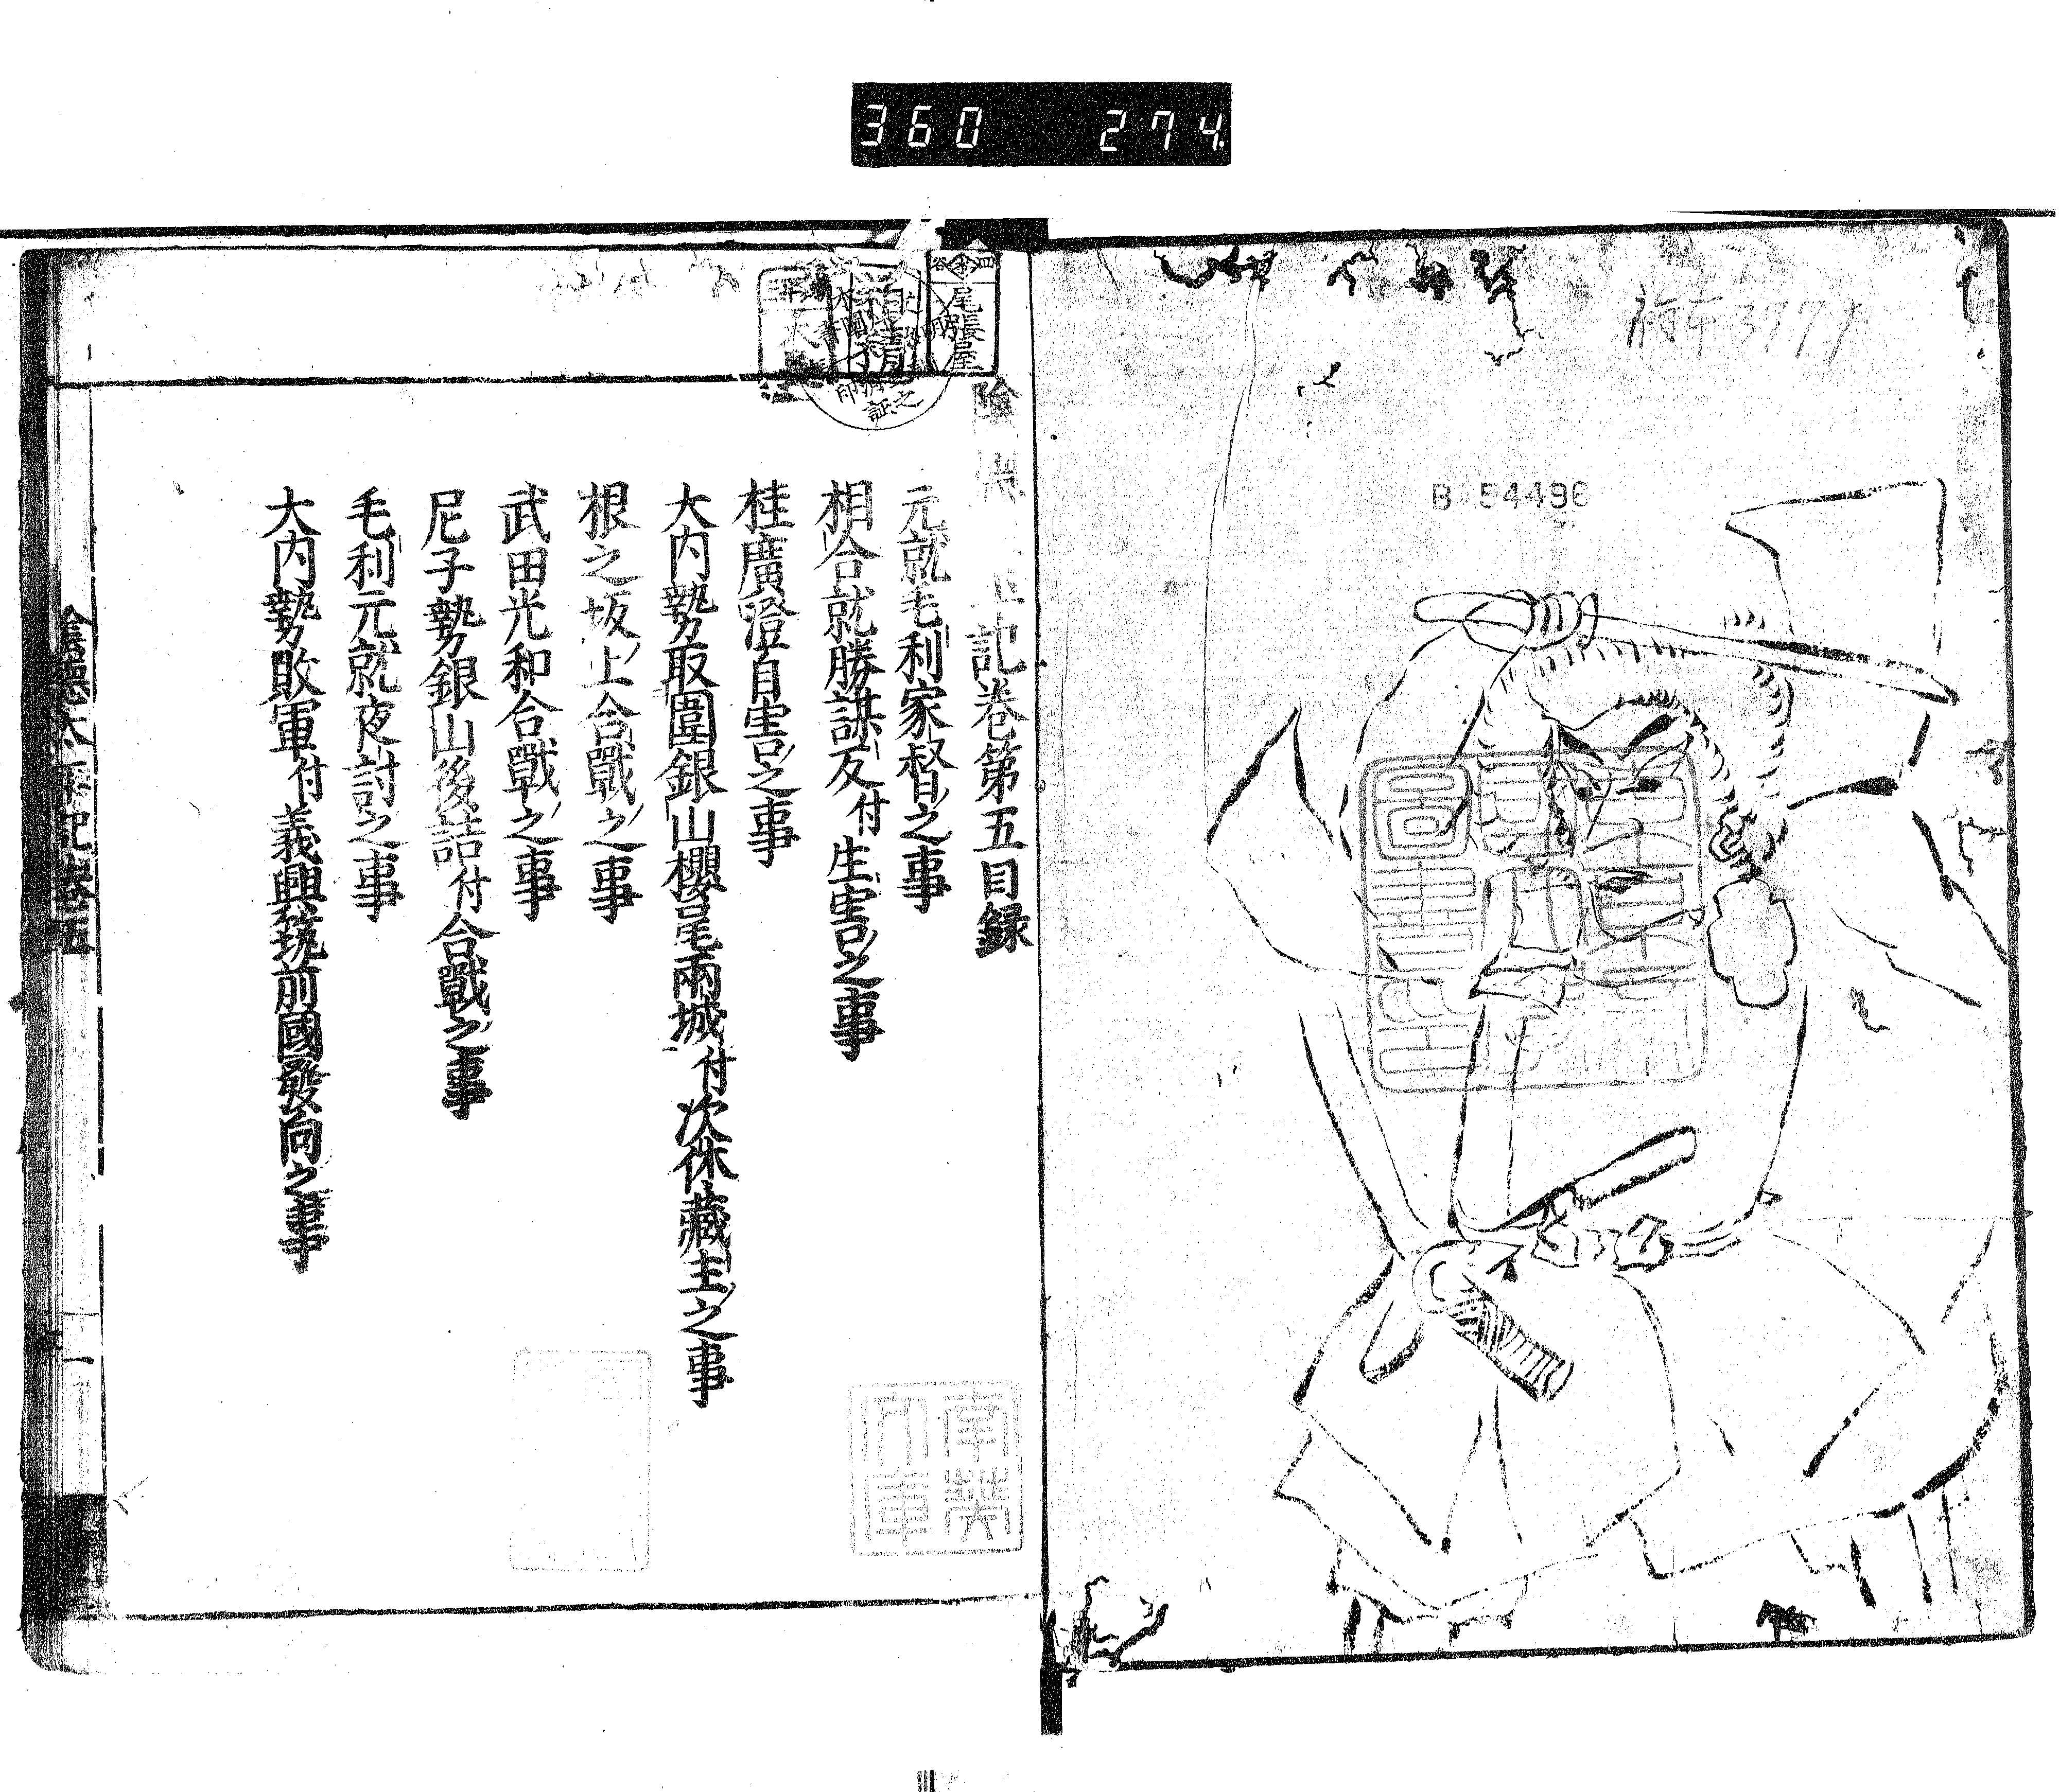 360 274
B 54496
尾張屋
記卷第五目録
元就毛利家督之事
相合就勝謀反付生害之事
桂廣澄自害之事
大内勢取圍銀山櫻尾兩城付次休藏主之事
根之坂上合戰之事
武田光和合戰之事
尼子勢銀山後詰付合戰之事
毛利元就夜討之事
大内勢敗軍付義興筑前國發向之事
南葵
文庫
一